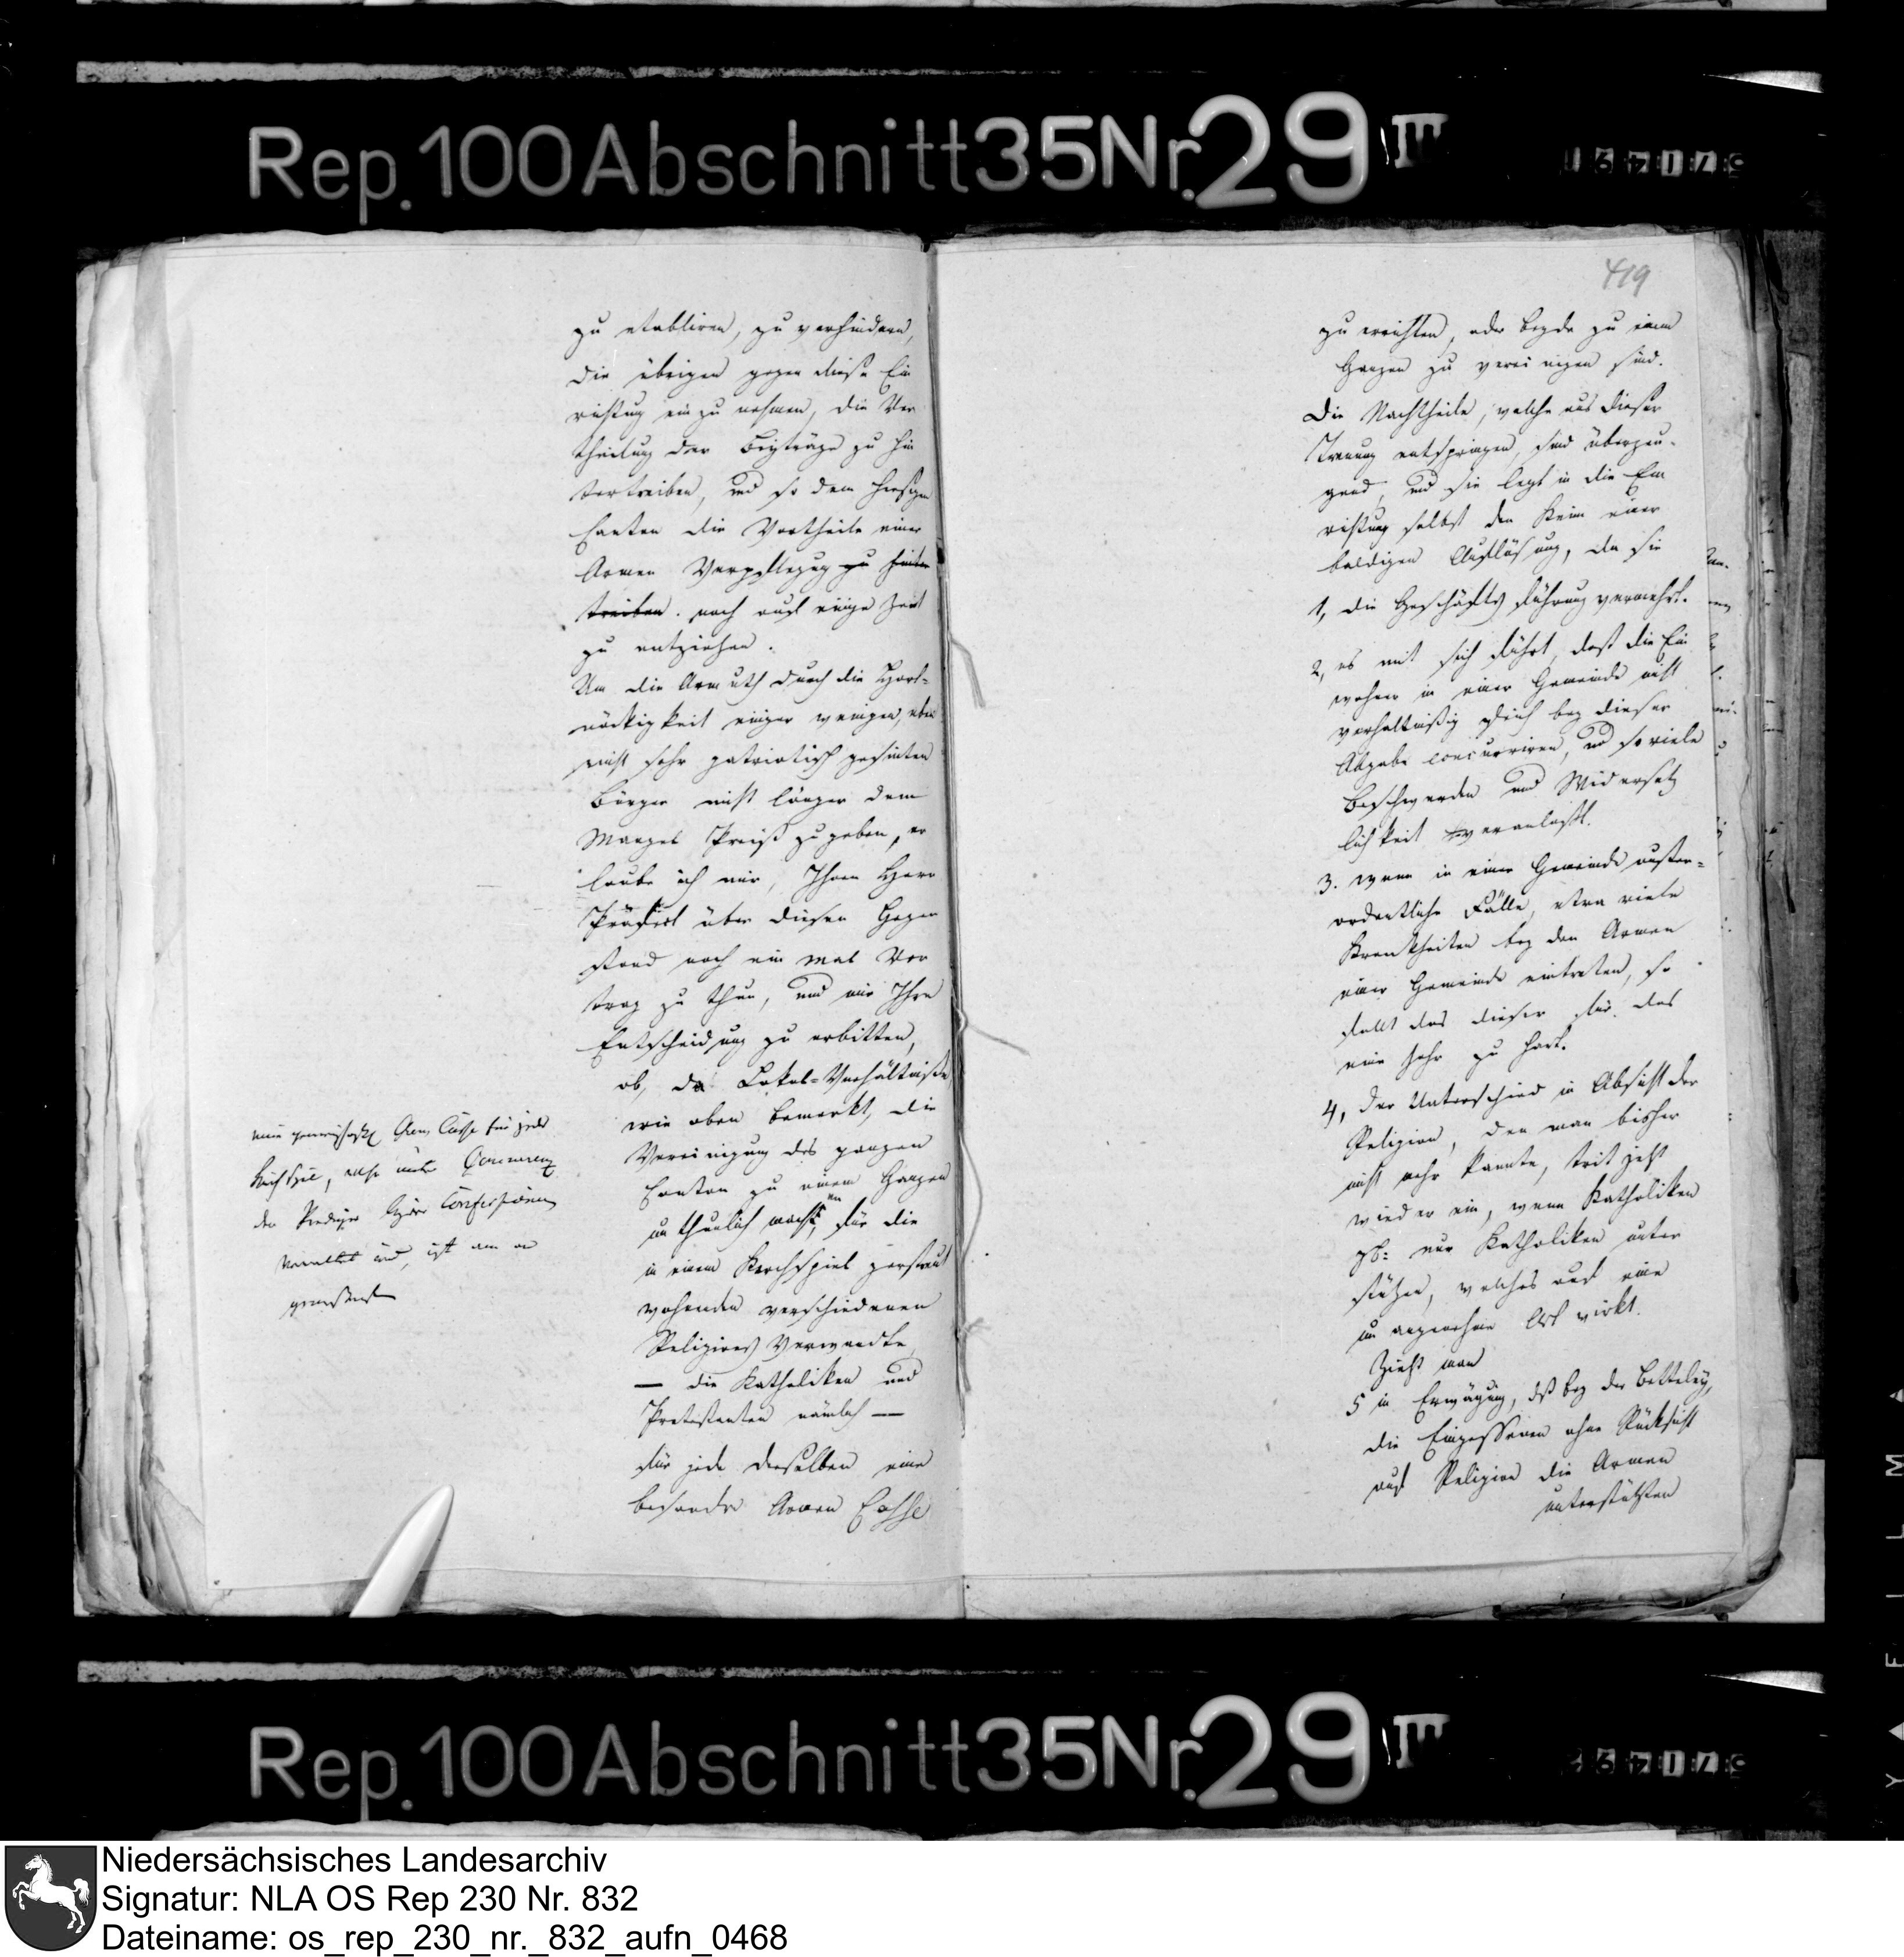 Rep. 100 Abschnitt 35 Nr. 29 III
zu etabliren, zu verhindern,
die übrigen gegen diese Ein
richtung einzunehmen, die Ver
theilung der Beyträge zu hin
tertreiben, und so dem hiesigen
Canton die Vortheile einer
Armen Verpflegung zu hinter
treiben. noch auf einige Zeit
zu entziehen.
Um die Armuth durch die Hart-
näckigkeit einiger weniger, eben
nicht sehr patriotisch gesinten
Bürger nicht länger dem
Mangel Preiß zu geben, er
laube ich mir, Ihnen Herr
Präfect über diesen Gegen
stand noch ein mal Vor
trag zu thun, und mir Ihre
Entscheidung zu erbitten,
ob, da Lokal-Verhältniße
wie oben bemerkt, die
Vereinigung des ganzen
Canton zu einem Ganzen
unthunlich machten, für die
in einem Kirchspiel zerstreut
wohnenden verschiedenen
Religions Verwandte
— die Katholiken und
Protestanten nämlich —
für jede derselben eine
besondre Armen Casse
eine gemeinschaftl Arm Casse für jedes
Kirchspiel, unter Concurrenz
der Prediger beider Confessionen
verwaltet wird, ist am
419
zu errichten, oder beyde zu einem
Ganzen zu vereinigen sind.
Die Nachtheile, welche aus dieser
Trennung entspringen, sind überzeu-
gend, und sie legt in die Ein
richtung selbst den Keim einer
baldigen Auflösung, da sie
1, die Geschäfts führung vermehrt.
2, es mit sich führt, daß die Ein
wohner in einer Gemeinde nicht
verhaltnißig gleich bey dieser
Abgabe concurriren, und so viele
Beschwerden und Widersetz
lichkeit veranlaßt.
3. wenn in einer Gemeinde außer-
ordentliche Fälle, etwa viele
Krankheiten bey den Armen
einer Gemeinde eintreten, so
fällt das dieser für das
eine Jahr zu hart.
4, der Unterschied in Absicht der
Religion, den man bisher
nicht mehr kannte, trit jetzt
wieder ein, wenn Katholiken
zB: nur Katholiken unter
stützen, welches auf eine
unangenehme Art wirkt.
Zieht man
5 in Erwägung, daß bey der Betteley,
die Eingesessenen ohne Rücksicht
auf Religion die Armen
unterstützten
Rep. 100 Abschnitt 35 Nr. 29 III
Niedersächsisches Landesarchiv
Signatur: NLA OS Rep 230 Nr. 832
Dateiname: os_rep_230_nr._832_aufn_0468